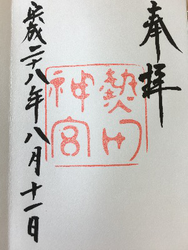 奉拝
熱田神宮
平成二十八年八月十一日